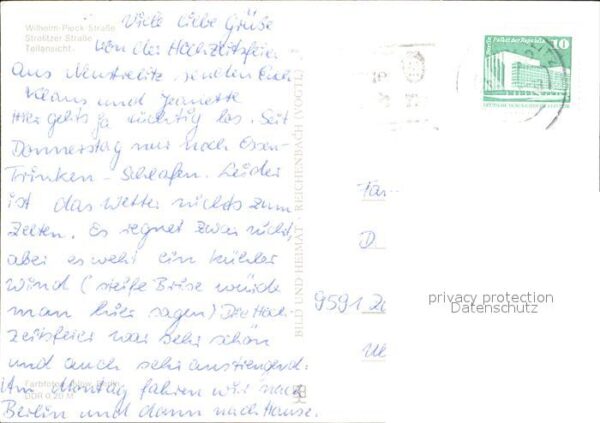 Wilhelm-Pieck-Straße
Strelitzer Straße
Teilansicht
Viele liebe Grüße
von der Hochzeitsfeier
aus Neustrelitz, senden Euch
Klaus und Jeanette
Hier gehts ja tüchtig los. Seit
Donnerstag nur noch Essen-
Trinken - Schlafen. Leider
ist das Wetter nichts zum
Zelten. Es regnet zwar nicht,
aber es weht ein kühler
Wind (steife Brise würde
man hier sagen) Die Hoch-
zeitsfeier war sehr schön
und auch sehr anstrengend.
Am Montag fahren wir nach
Berlin und dann nach Hause.
DDR 0,20 M
BILD UND HEIMAT · REICHENBACH (VOGTL)
Palast der Republik
10
Fam
D
9591
privacy protection
Datenschutz